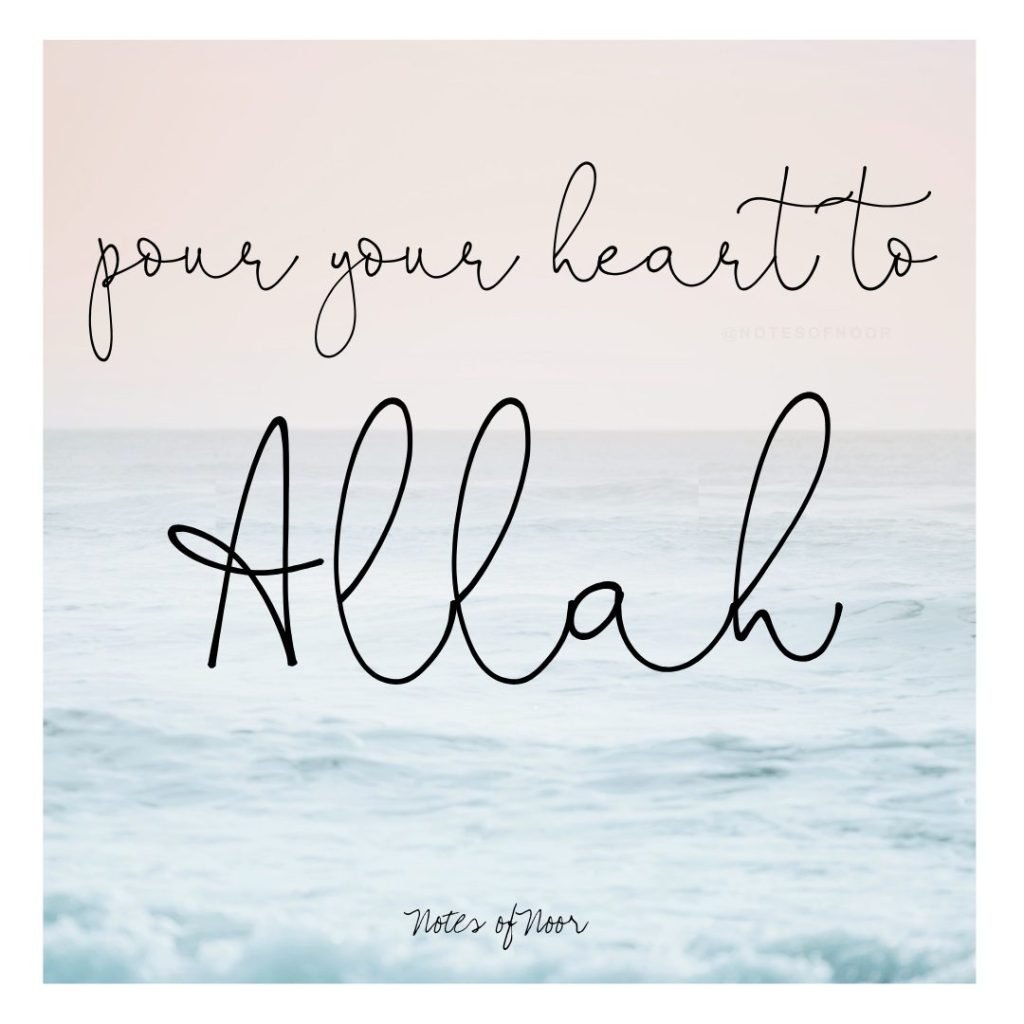 pour your heart to
@NOTESOFNOOR
Allah
Notes of Noor